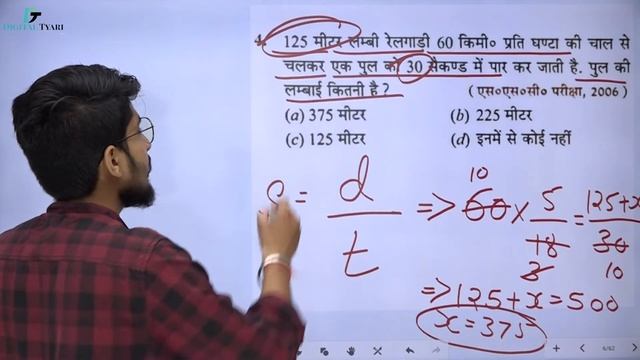 DIGITAL TYARI
4. 125 मीटर लम्बी रेलगाड़ी 60 किमी० प्रति घण्टा की चाल से
चलकर एक पुल को 30 सैकण्ड में पार कर जाती है. पुल की
लम्बाई कितनी है ?
( एस०एस०सी० परीक्षा, 2006 )
(a) 375 मीटर
(b) 225 मीटर
(c) 125 मीटर
(d) इनमें से कोई नहीं
= d / t
=> 60 × 5 / 18 = 125+x / 30
10
3
10
=> 125+x = 500
x = 375
6/62